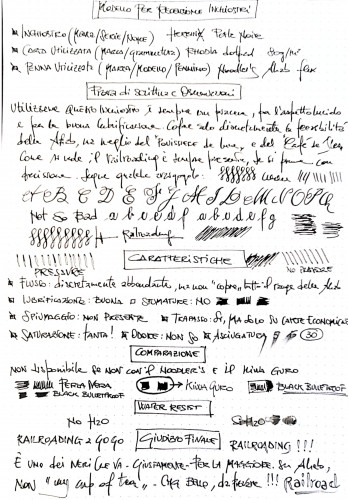 Modello Per Recensione Inchiostri
Inchiostro (Marca/Serie/Nome) Herbin Perle Noire
Carta Utilizzata (Marca/grammatura) Rhodia dotPad 80g/m²
Penna Utilizzata (Marca/Modello/Pennino) Noodler's Ahab flex
Prova di Scrittura e Osservazioni
Utilizzare questo inchiostro è sempre un piacere, per l'aspetto lucido
e per la buona lubrificazione. Copre discretamente la flessibilità
della Ahab, ma meglio del
Come si vede il Railroading è sempre presente, se si preme con
precisione. Segue qualche
A B C D E F G H I L M N O P Q
Not So Bad a b c d e f a b c d e f g
Railroading
PRESSURE
CARATTERISTICHE
NO PRESSURE
Flusso: discretamente abbondante, ma non "copre" tutto il range della Ahab
Lubrificazione: Buona Sfumature: NO
Spiumaggio: non presente Trapasso: Sì, ma solo su carte economiche
Saturazione: Tanta! Odore: Non so Asciugatura 30"
COMPARAZIONE
Non disponibile se non con il Noodler's e il Kiwa Guro
Perla Nera Kiwa Guro Black Bulletproof
Black Bulletproof
WATER RESIST
No H2O H2O
RAILROADING 2 GOGO GIUDIZIO FINALE RAILROADING !!!
È uno dei neri che va - giustamente - per la maggiore. Su Ahab,
non "my cup of tea" - Che bello, da avere !!! Railroad